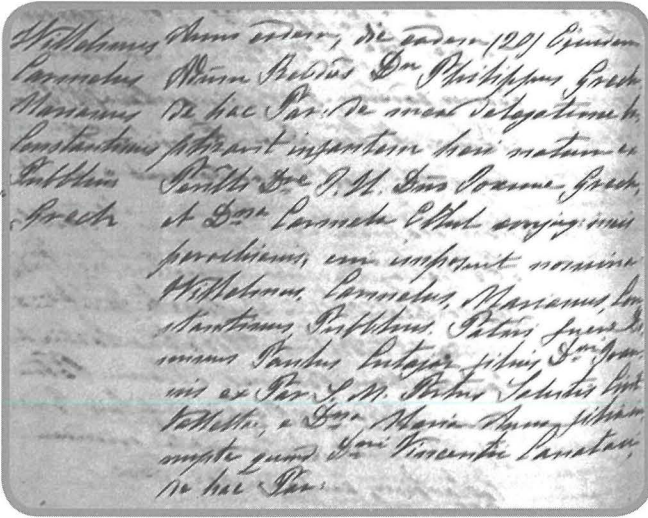 Wilhelmus
Carmelus
Marianus
Constantinus
Publius
Grech
Anno eodem, die eadem (20) Ejusdem
Adum Rebdus Dn Philippus Grech
de hac Par: de mea delegatione b
ptizavit infantem heri natum ex
J. U. Dno Joanne Grech,
et Dna Carmela conjug: meis
parochianis, cui imposuit nomina
Wilhelmus, Carmelus, Marianus, Con
stantinus Publius. Patrini fuere Do
minus Paulus filius Dni Joan
nis ex Par S. M. Portus Salutis Civit
Vallettæ, e Dna Maria Anna filia
nupta quond Dni Vincentii
de hac Par: